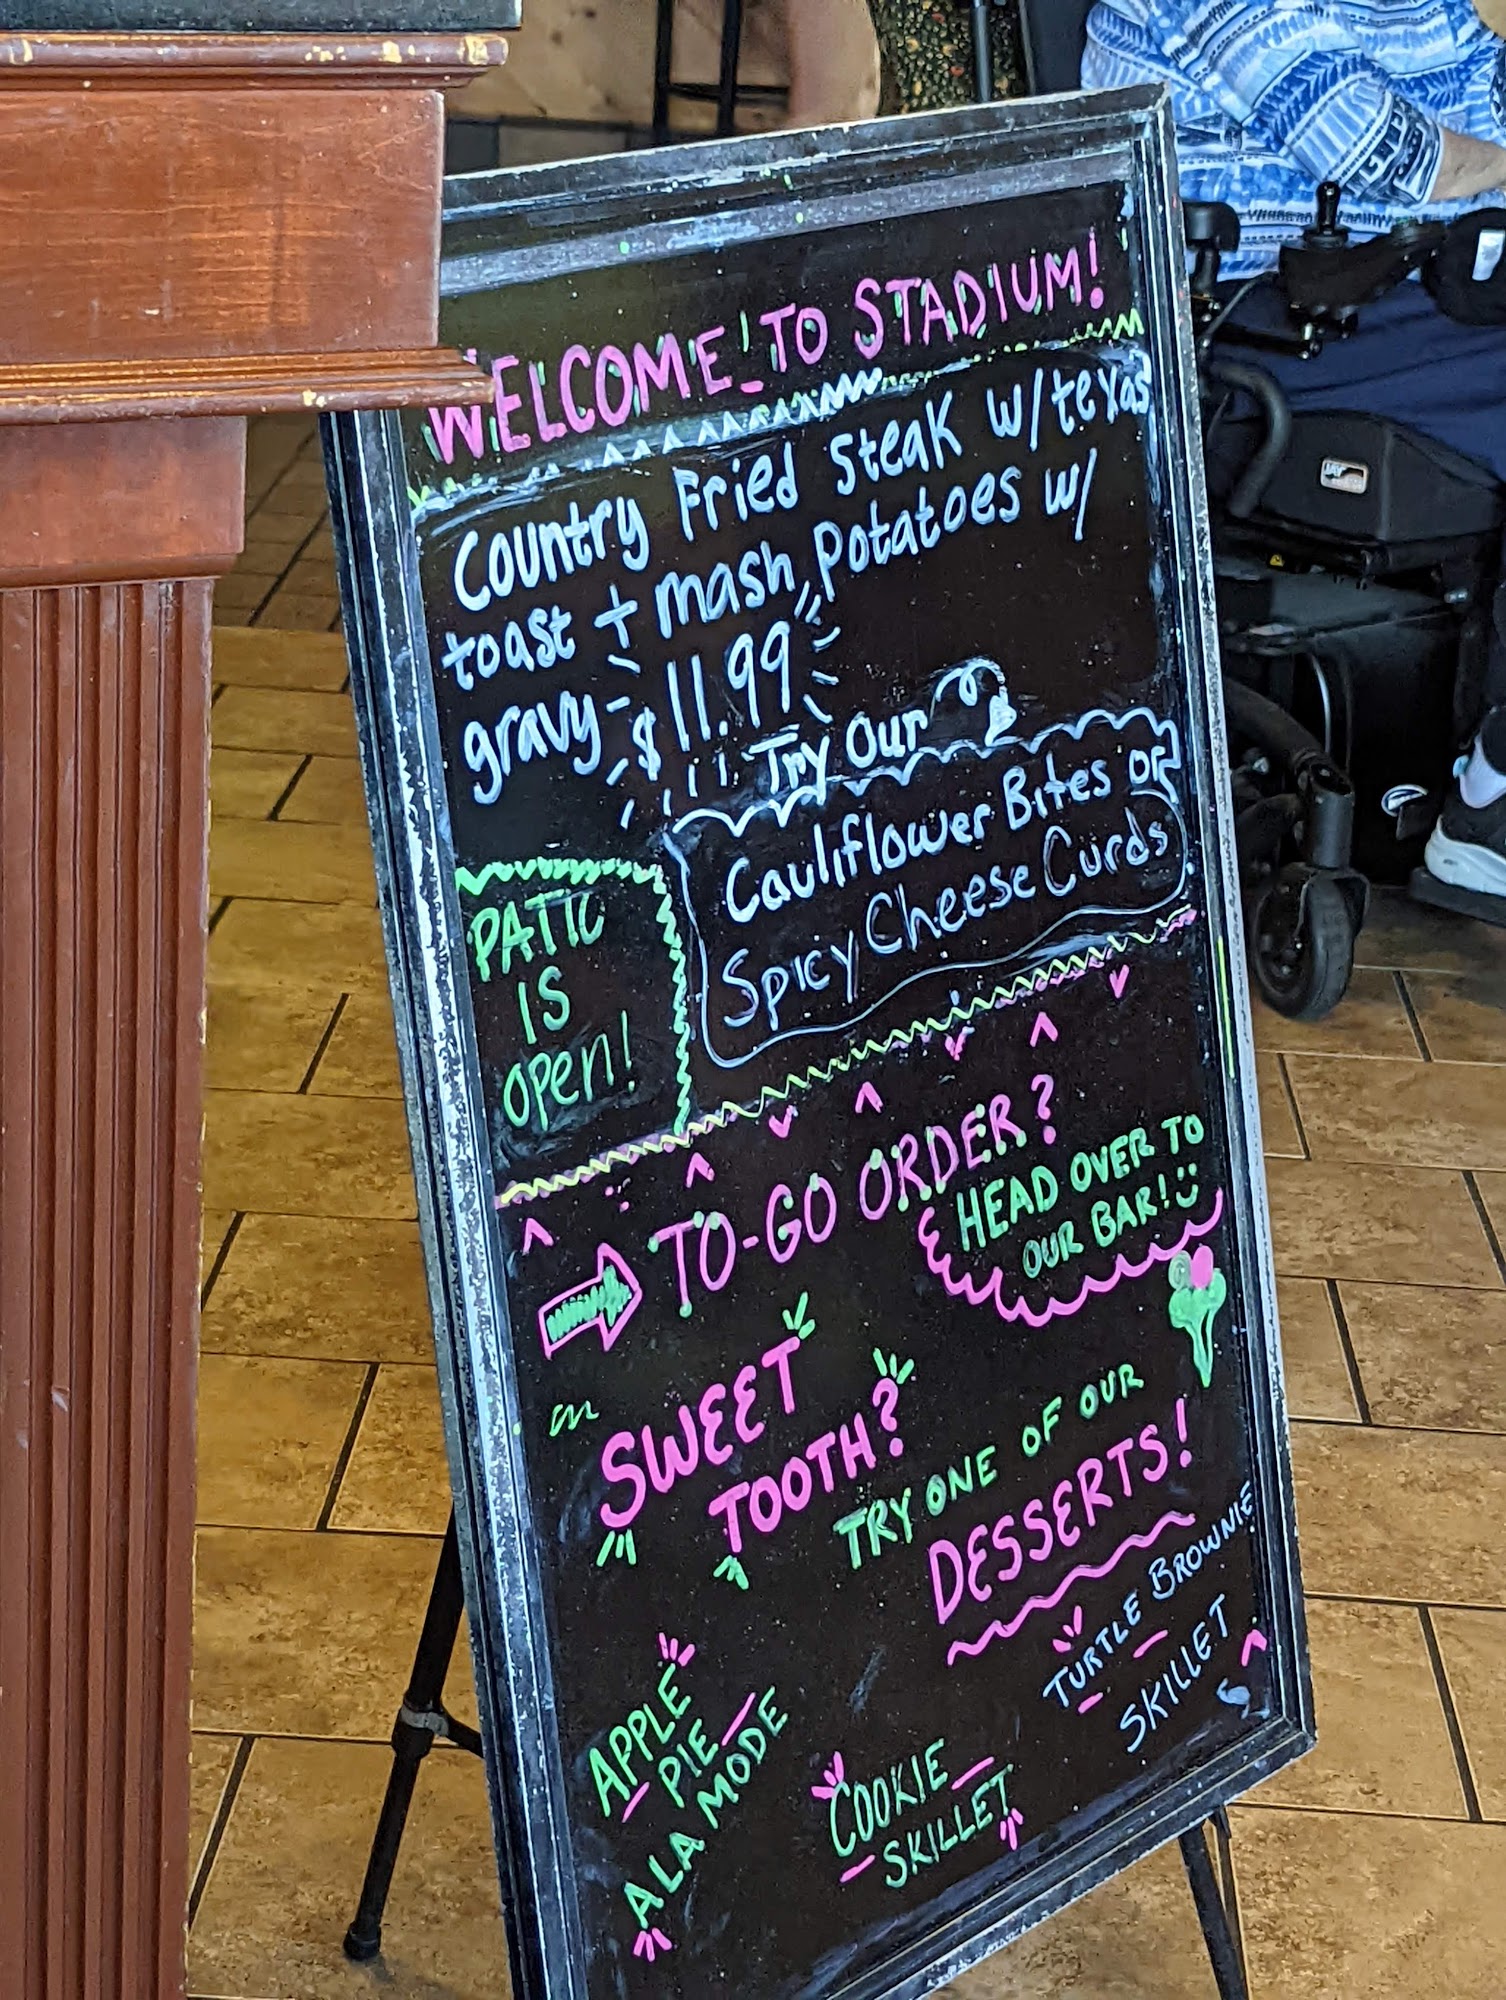 WELCOME TO STADIUM!
Country Fried Steak w/texas
toast + mash potatoes w/
gravy - $11.99
Try Our
Cauliflower Bites or
Spicy Cheese Curds
PATIO
IS
open!
TO-GO ORDER?
HEAD OVER TO
OUR BAR!
SWEET
TOOTH?
TRY ONE OF OUR
DESSERTS!
APPLE
PIE
ALA MODE
COOKIE
SKILLET
TURTLE BROWNIE
SKILLET